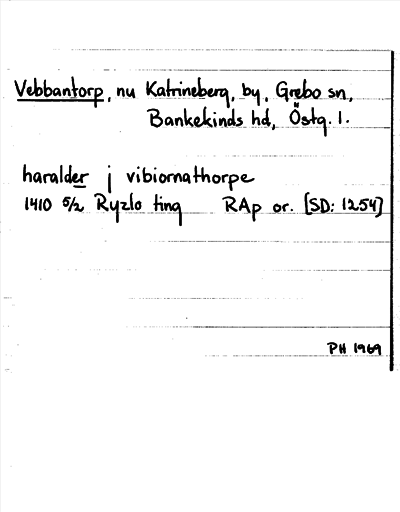 Vebbantorp, nu Katrineberg, by, Grebo sn,
Bankekinds hd, Östg. l.
haralder j vibiornathorpe
1410 5/2 Ryzlo ting RAp or. [SD: 1254]
PH 1969